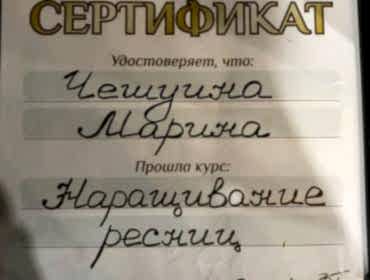 СЕРТИФИКАТ
Удостоверяет, что:
Чешуина
Марина
Прошла курс:
Наращивание
ресниц